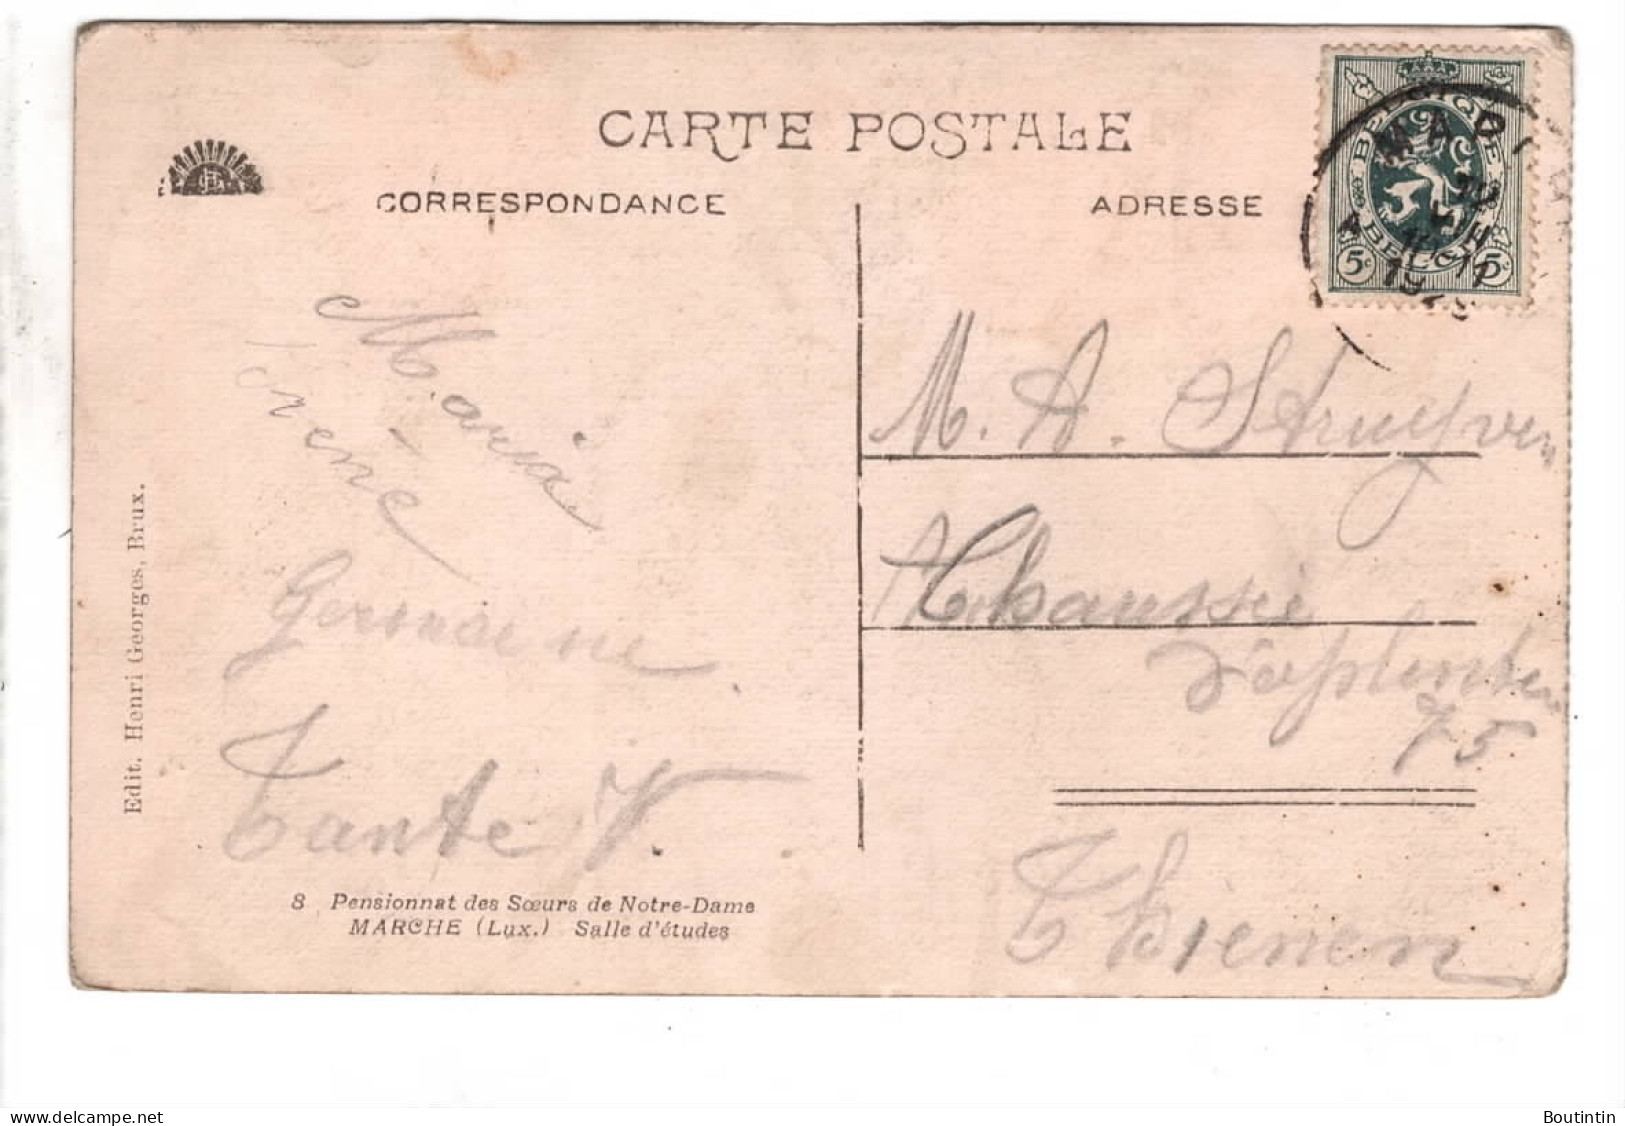 CARTE POSTALE
CORRESPONDANCE
ADRESSE
BELGIQUE
BELGIË
5c 5c
MAR
Maria
Irène
Germaine
Tante V.
M. A. Struyven
Chaussée
75
Thienen
Edit. Henri Georges, Brux.
8 Pensionnat des Sœurs de Notre-Dame
MARCHE (Lux.) Salle d'études
www.delcampe.net
Boutintin